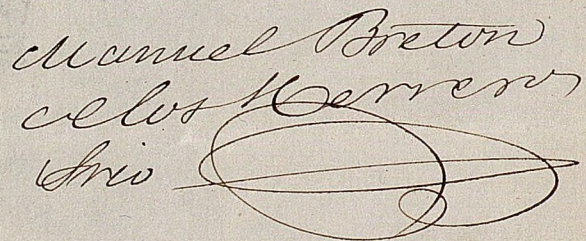 Manuel Breton
de los Herreros
Srio